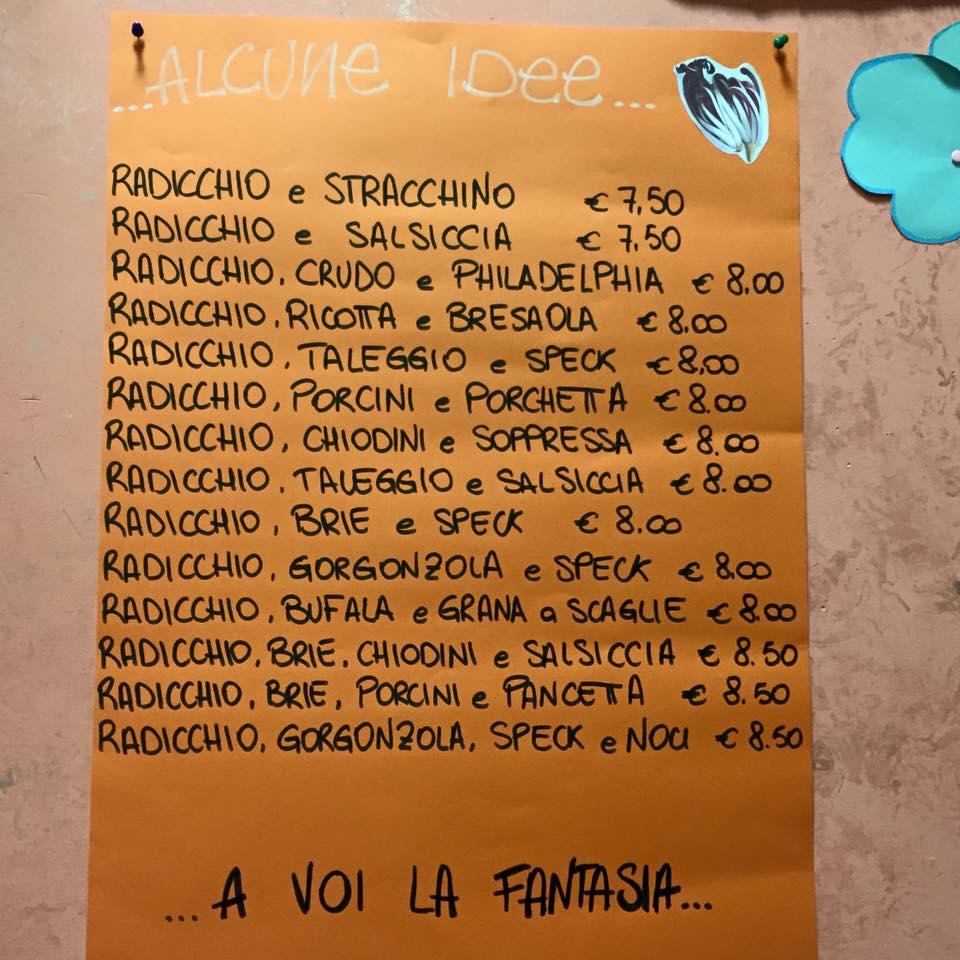 ...ALCUNE IDEE...
RADICCHIO e STRACCHINO € 7,50
RADICCHIO e SALSICCIA € 7,50
RADICCHIO, CRUDO e PHILADELPHIA € 8.00
RADICCHIO, RICOTTA e BRESAOLA € 8.00
RADICCHIO, TALEGGIO e SPECK € 8,00
RADICCHIO, PORCINI e PORCHETTA € 8.00
RADICCHIO, CHIODINI e SOPPRESSA € 8.00
RADICCHIO, TALEGGIO e SALSICCIA € 8.00
RADICCHIO, BRIE e SPECK € 8.00
RADICCHIO, GORGONZOLA e SPECK € 8.00
RADICCHIO, BUFALA e GRANA a SCAGLIE € 8.00
RADICCHIO, BRIE, CHIODINI e SALSICCIA € 8.50
RADICCHIO, BRIE, PORCINI e PANCETTA € 8.50
RADICCHIO, GORGONZOLA, SPECK e NOCI € 8.50
...A VOI LA FANTASIA...